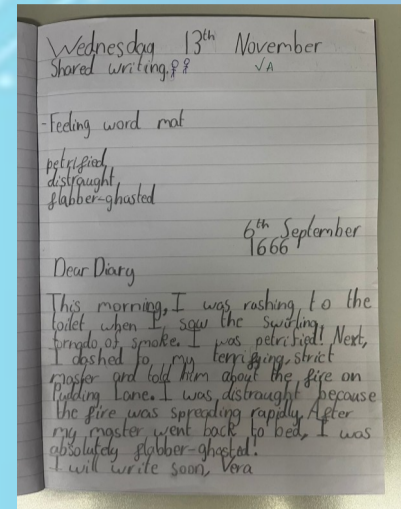 Wednesday 13th November
Shared writing. √A
-Feeling word mat
petrified,
distraught
flabber-ghasted
6th September
1666
Dear Diary
This morning, I was rushing to the
toilet when I saw the swirling
tornado of smoke. I was petrified! Next,
I dashed to my terrifying, strict
master and told him about the fire on
Pudding Lane. I was distraught because
the fire was spreading rapidly. After
my master went back to bed, I was
absolutely flabber-ghasted!
I will write soon, Vera